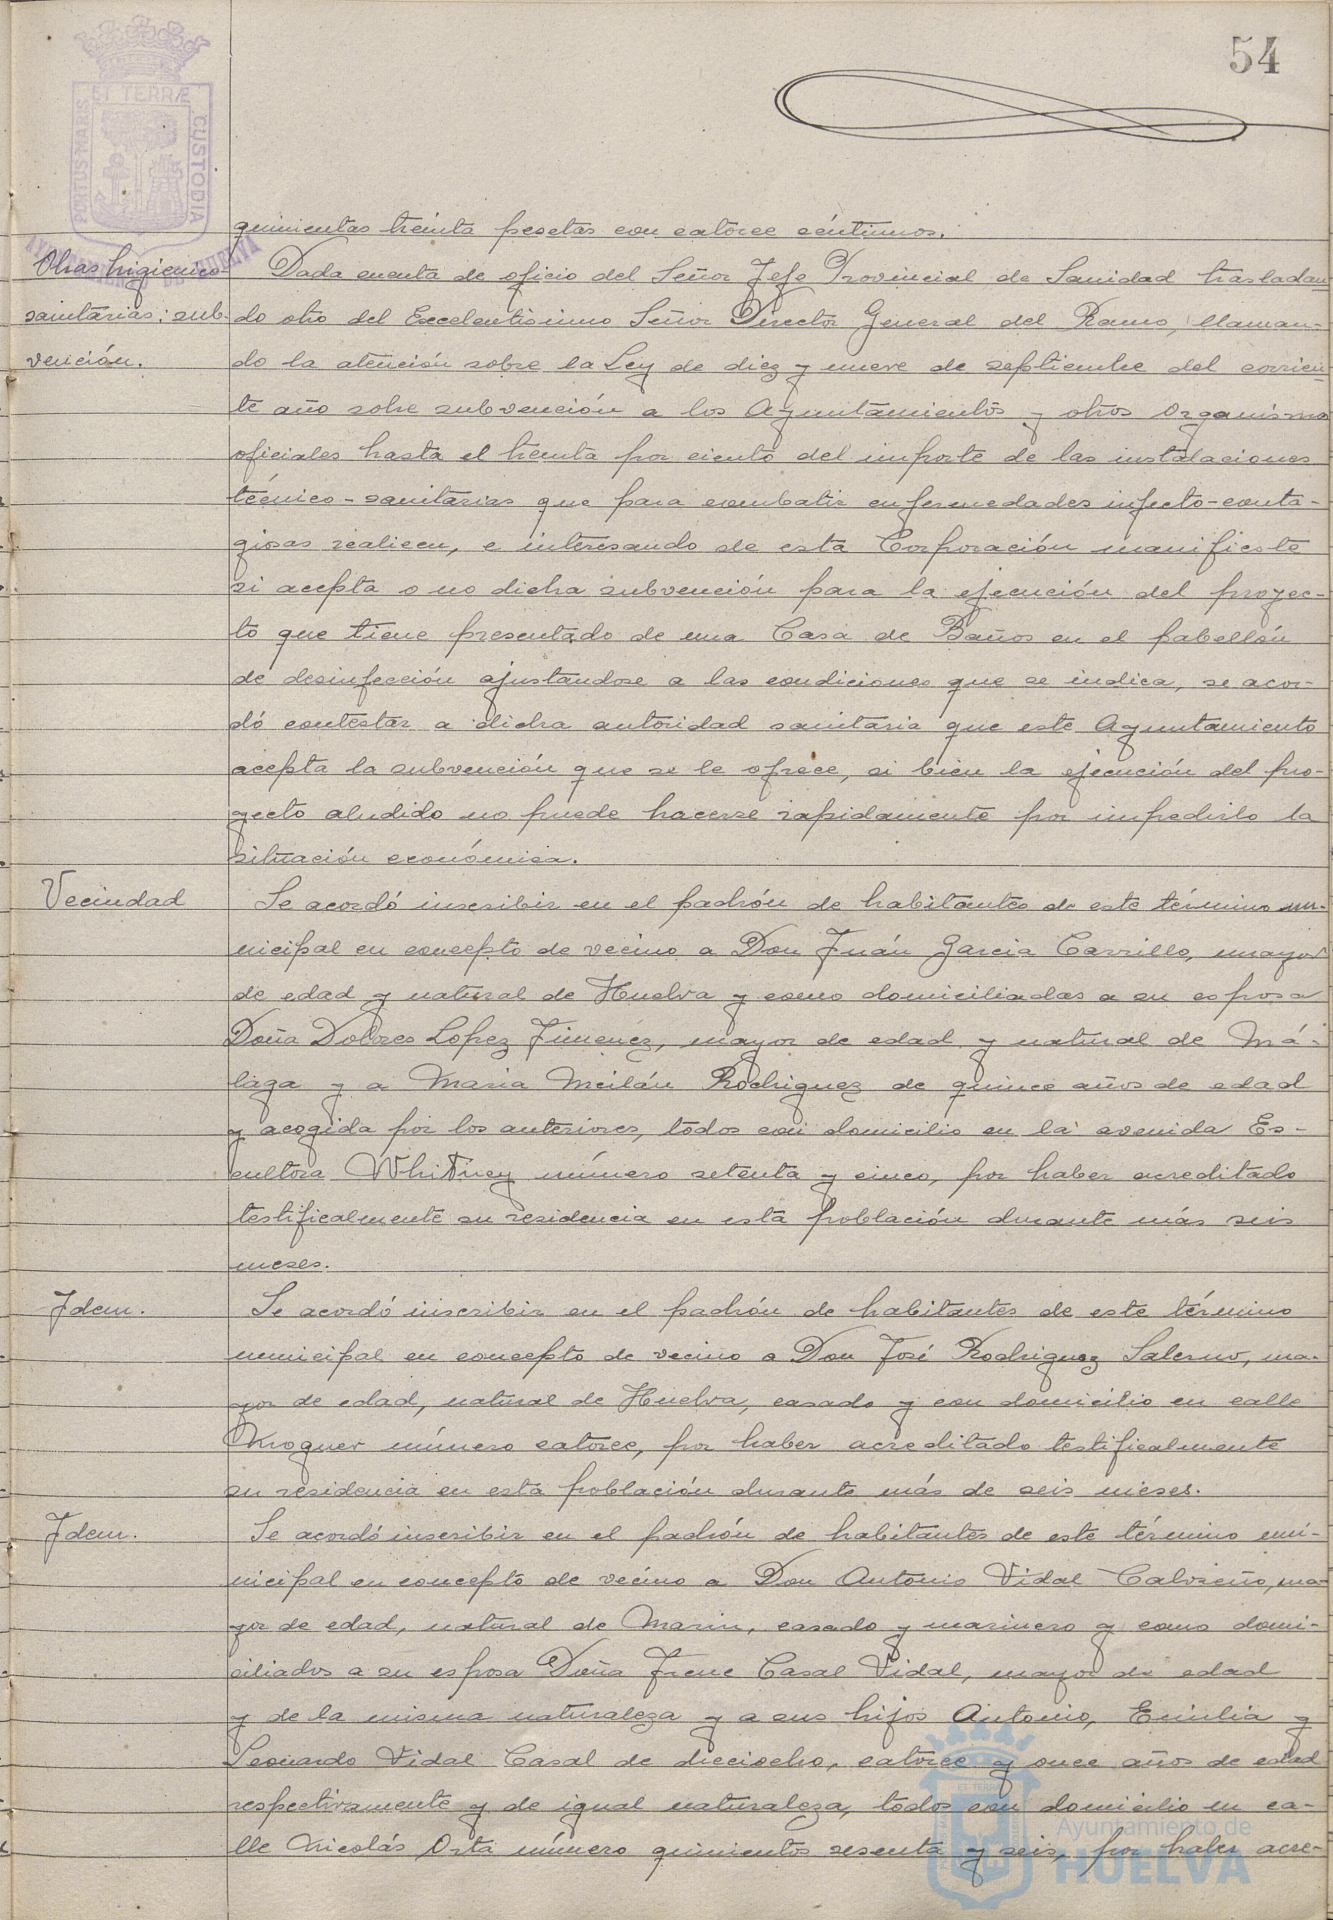 54
ET TERRÆ
PORTUS MARIS
CUSTODIA
AYUNTAMIENTO DE HUELVA
quinientas treinta pesetas con catorce céntimos.
Obras higienico-
sanitarias; sub-
vención.
Dada cuenta de oficio del Señor Jefe Provincial de Sanidad trasladan-
do otro del Excelentisimo Señor Director General del Ramo, llaman-
do la atención sobre la Ley de diez y nueve de septiembre del corrien-
te año sobre subvención a los Ayuntamientos y otros organismos
oficiales hasta el treinta por ciento del importe de las instalaciones
técnico-sanitarias que para combatir enfermedades infecto-conta-
giosas realicen, e interesando de esta Corporación manifieste
si acepta o no dicha subvención para la ejecución del proyec-
to que tiene presentado de una Casa de Baños en el pabellón
de desinfección ajustandose a las condiciones que se indica, se acor-
dó contestar a dicha autoridad sanitaria que este Ayuntamiento
acepta la subvención que se le ofrece, si bien la ejecución del pro-
yecto aludido no puede hacerse rapidamente por impedirlo la
situación económica.
Vecindad
Se acordó inscribir en el padrón de habitantes de este término mu-
nicipal en concepto de vecino a Don Juán Garcia Carrillo, mayor
de edad y natural de Huelva y como domiciliadas a su esposa
Doña Dolores Lopez Jimenez, mayor de edad y natural de Má-
laga y a Maria Meilán Rodriguez de quince años de edad
y acogida por los anteriores, todos con domicilio en la avenida Es-
cultora Whitney número setenta y cinco, por haber acreditado
testificalmente su residencia en esta población durante más seis
meses.
Idem.
Se acordó inscribir en el padrón de habitantes de este término
municipal en concepto de vecino a Don José Rodriguez Salerno, ma-
yor de edad, natural de Huelva, casado y con domicilio en calle
Moguer número catorce, por haber acreditado testificalmente
su residencia en esta población durante más de seis meses.
Idem.
Se acordó inscribir en el padrón de habitantes de este término mu-
nicipal en concepto de vecino a Don Antonio Vidal ma-
yor de edad, natural de Marin, casado y marinero y como domi-
ciliados a su esposa Doña Irene Casal Vidal, mayor de edad
y de la misma naturaleza y a sus hijos Antonio, Emilia y
Leonardo Vidal Casal de dieciocho, catorce y once años de edad
respectivamente y de igual naturaleza, todos con domicilio en ca-
lle Nicolás Orta número quinientos sesenta y seis, por haber acre-
Ayuntamiento de
HUELVA